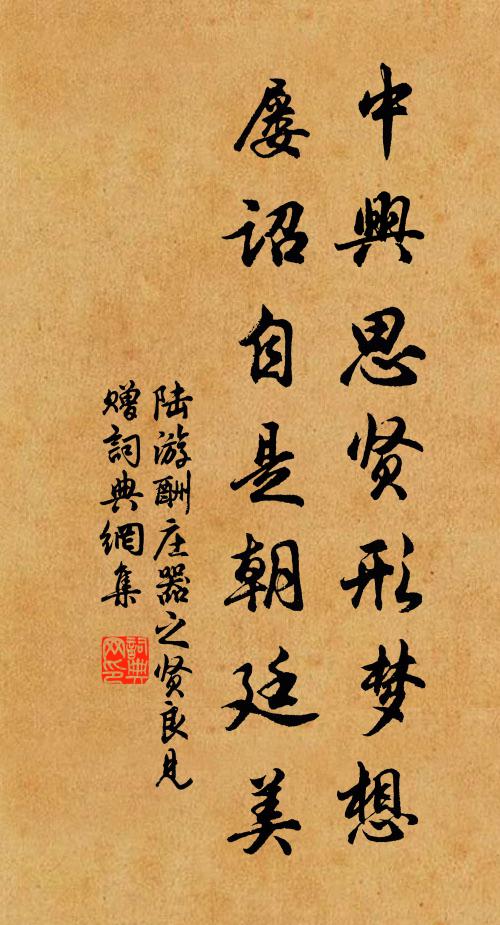 中興思贤形梦想
屡詔自是朝廷美
陆游酬庄器之贤良見
赠詞典網集
詞典網印